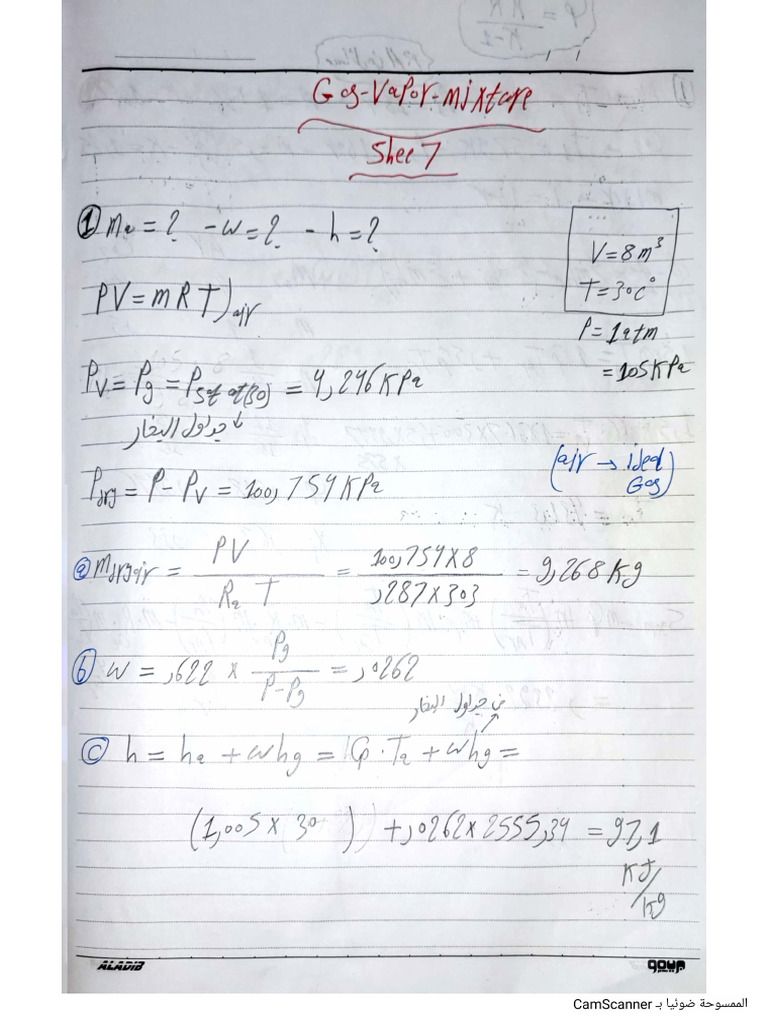 Gas-Vapor-mixture
Sheet 7
① ma = ? - w = ? - h = ?
V = 8 m³
T = 30 c°
PV = mRT)air
P = 1 atm
= 105 KPa
Pv = Pg = Psat at(30) = 4,246 KPa
جداول البخار
(air → ideal Gas)
Pdry = P - Pv = 100,754 KPa
ⓐ mdry air = PV / Ra T = 100,754 x 8 / ,287 x 303 = 9,268 Kg
ⓑ w = ,622 x Pg / P-Pg = ,0262
من جداول البخار
ⓒ h = ha + whg = Cp · Ta + whg =
(1,005 x 30) + ,0262 x 2555,34 = 97,1 KJ/Kg
ALADIB
group
الممسوحة ضوئيا بـ CamScanner